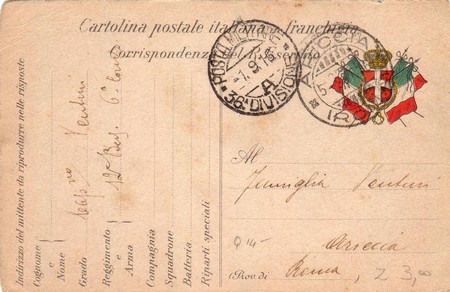 Cartolina postale italiana in franchigia
Corrispondenza del R. Esercito
POSTA MILITARE
1.9.16
A
36ª DIVISIONE
Indirizzo del mittente da riprodurre nelle risposte
Cognome e Nome
Venturi
Grado
Cap.no
Reggimento e Arma
12º Bers. 6ª
Compagnia
Squadrone
Batteria
Riparti speciali
Al
Famiglia Venturi
Q 14-
Ariccia
(Prov. di Roma,
Z 3,00